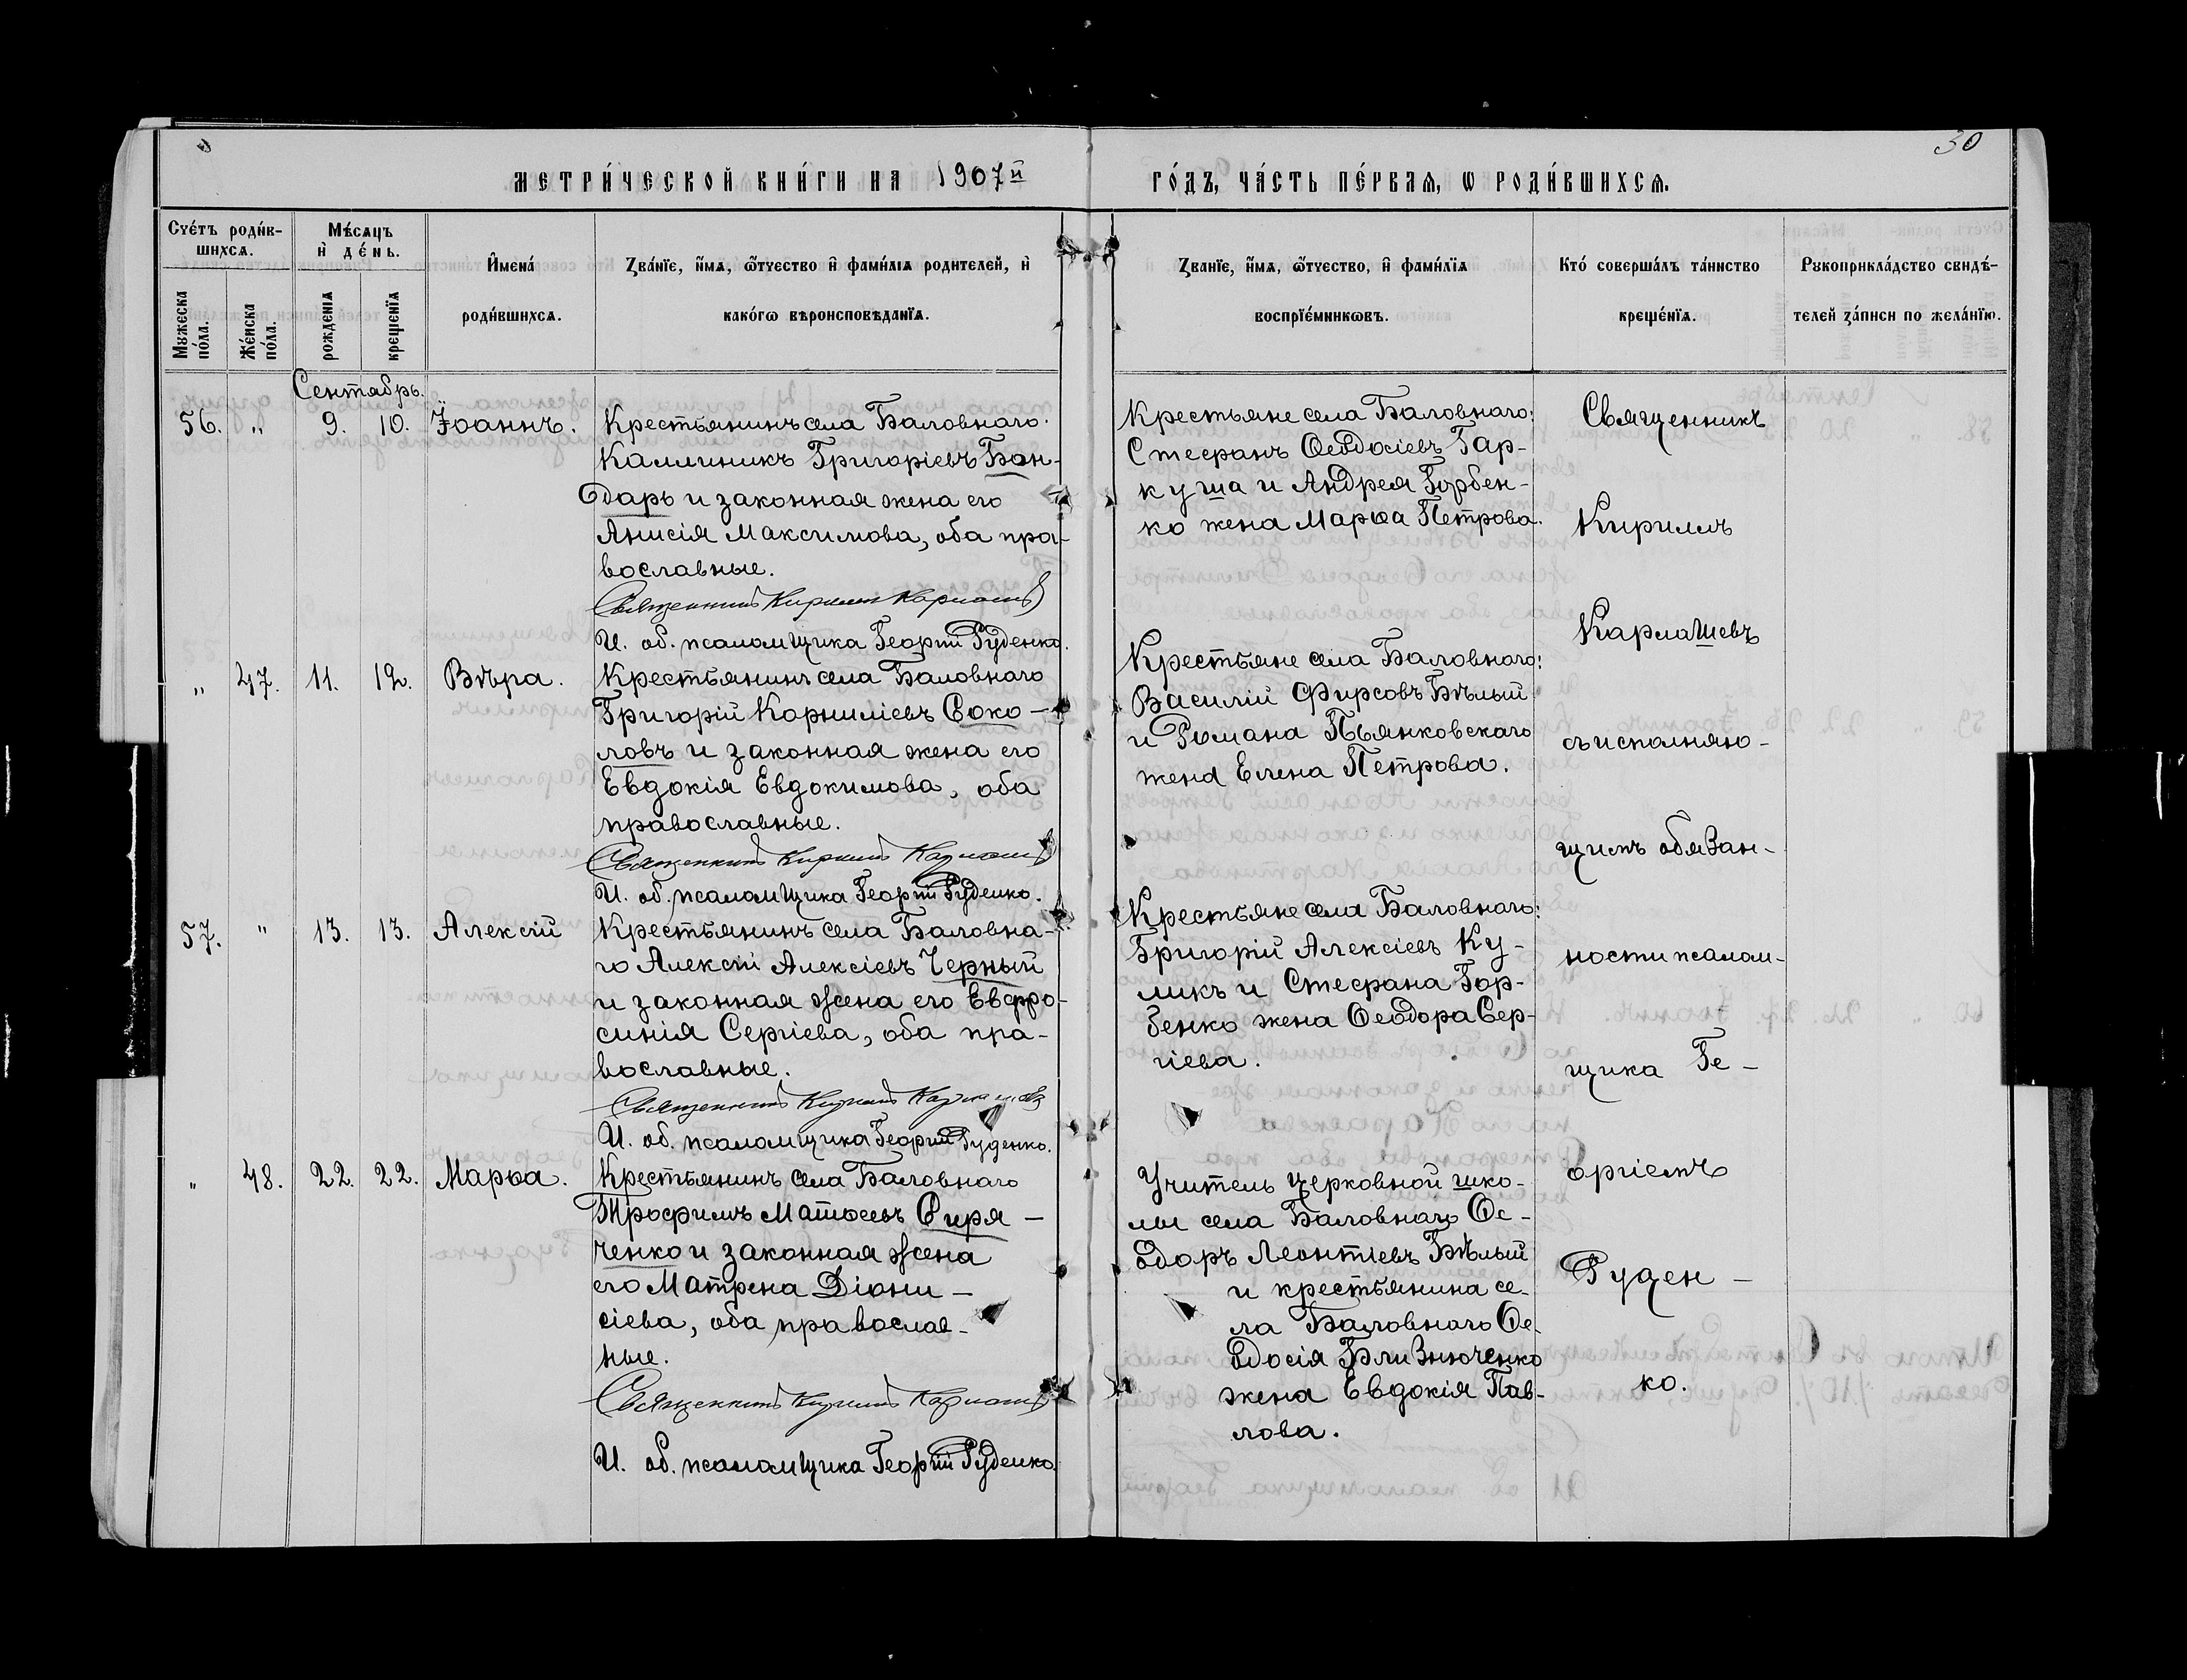 30
МЕТРИ́ЧЕСКОЙ КНИ́ГИ НА 1907й ГО́ДЪ, ЧА́СТЬ ПЕ́РВАЯ, Ѡ РОДИ́ВШИХСЯ.
Сче́тъ роди́в-
шихся.
Мꙋжеска
по́ла.
Же́нска
по́ла.
Мѣ́сяцъ
и҆ де́нь.
рожденія
крещенїя
И҆мена́
роди́вшихся.
Зва́нїе, и҆́мя, ѻ҆́тчество и҆ фами́лїя родителей, и҆
како́гѡ вѣроисповѣ́данїя.
Званїе, и҆́мя, ѻ҆́тчество, и҆ фами́лїя
воспрїе́мниковъ.
Кто́ соверша́лъ та́инство
креще́нїя.
Рꙋкоприкла́дство свидѣ́-
телей за́писи по жела́нїю.
Сентябрь.
56. „ 9. 10. Іоаннъ.
Крестьянинъ села Баловнаго
Каллиникъ Григоріевъ Бон-
дарь и законная жена его
Анисія Максимова, оба пра-
вославные.
Священникъ Кириллъ Карлашевъ
И. об. псаломщика Георгій Руденко.
Крестьяне села Баловнаго:
Стефанъ Ѳеодосіевъ Гар-
куша и Андрея Горбен-
ко жена Марѳа Петрова.
„ 47. 11. 12. Вѣра.
Крестьянинъ села Баловнаго
Григорій Корниліевъ Соко-
ловъ и законная жена его
Евдокія Евдокимова, оба
православные.
Священникъ Кириллъ Карлашевъ
И. об. псаломщика Георгій Руденко.
Крестьяне села Баловнаго:
Василій Фирсовъ Бѣлый
и Романа Пьянковскаго
жена Елена Петрова.
57. „ 13. 13. Алексій
Крестьянинъ села Баловна-
го Алексій Алексіевъ Черный
и законная жена его Евфро-
синія Сергіева, оба пра-
вославные.
Священникъ Кириллъ Карлашевъ
И. об. псаломщика Георгій Руденко.
Крестьяне села Баловнаго:
Григорій Алексіевъ Ку-
ликъ и Стефана Гор-
бенко жена Ѳеодора Сер-
гіева.
„ 48. 22. 22. Марѳа.
Крестьянинъ села Баловнаго
Трофимъ Матѳеевъ Сиря-
ченко и законная жена
его Матрена Діони-
сіева, оба православ-
ные.
Священникъ Кириллъ Карлашевъ
И. об. псаломщика Георгій Руденко.
Учитель церковной шко-
лы села Баловнаго Ѳе-
одоръ Леонтіевъ Бѣлый
и крестьянина се-
ла Баловнаго Ѳе-
одосія Близнюченко
жена Евдокія Пав-
лова.
Священникъ
Кириллъ
Карлашевъ
съ исполняю-
щимъ обязан-
ности псалом-
щика Ге-
оргіемъ
Руден-
ко.